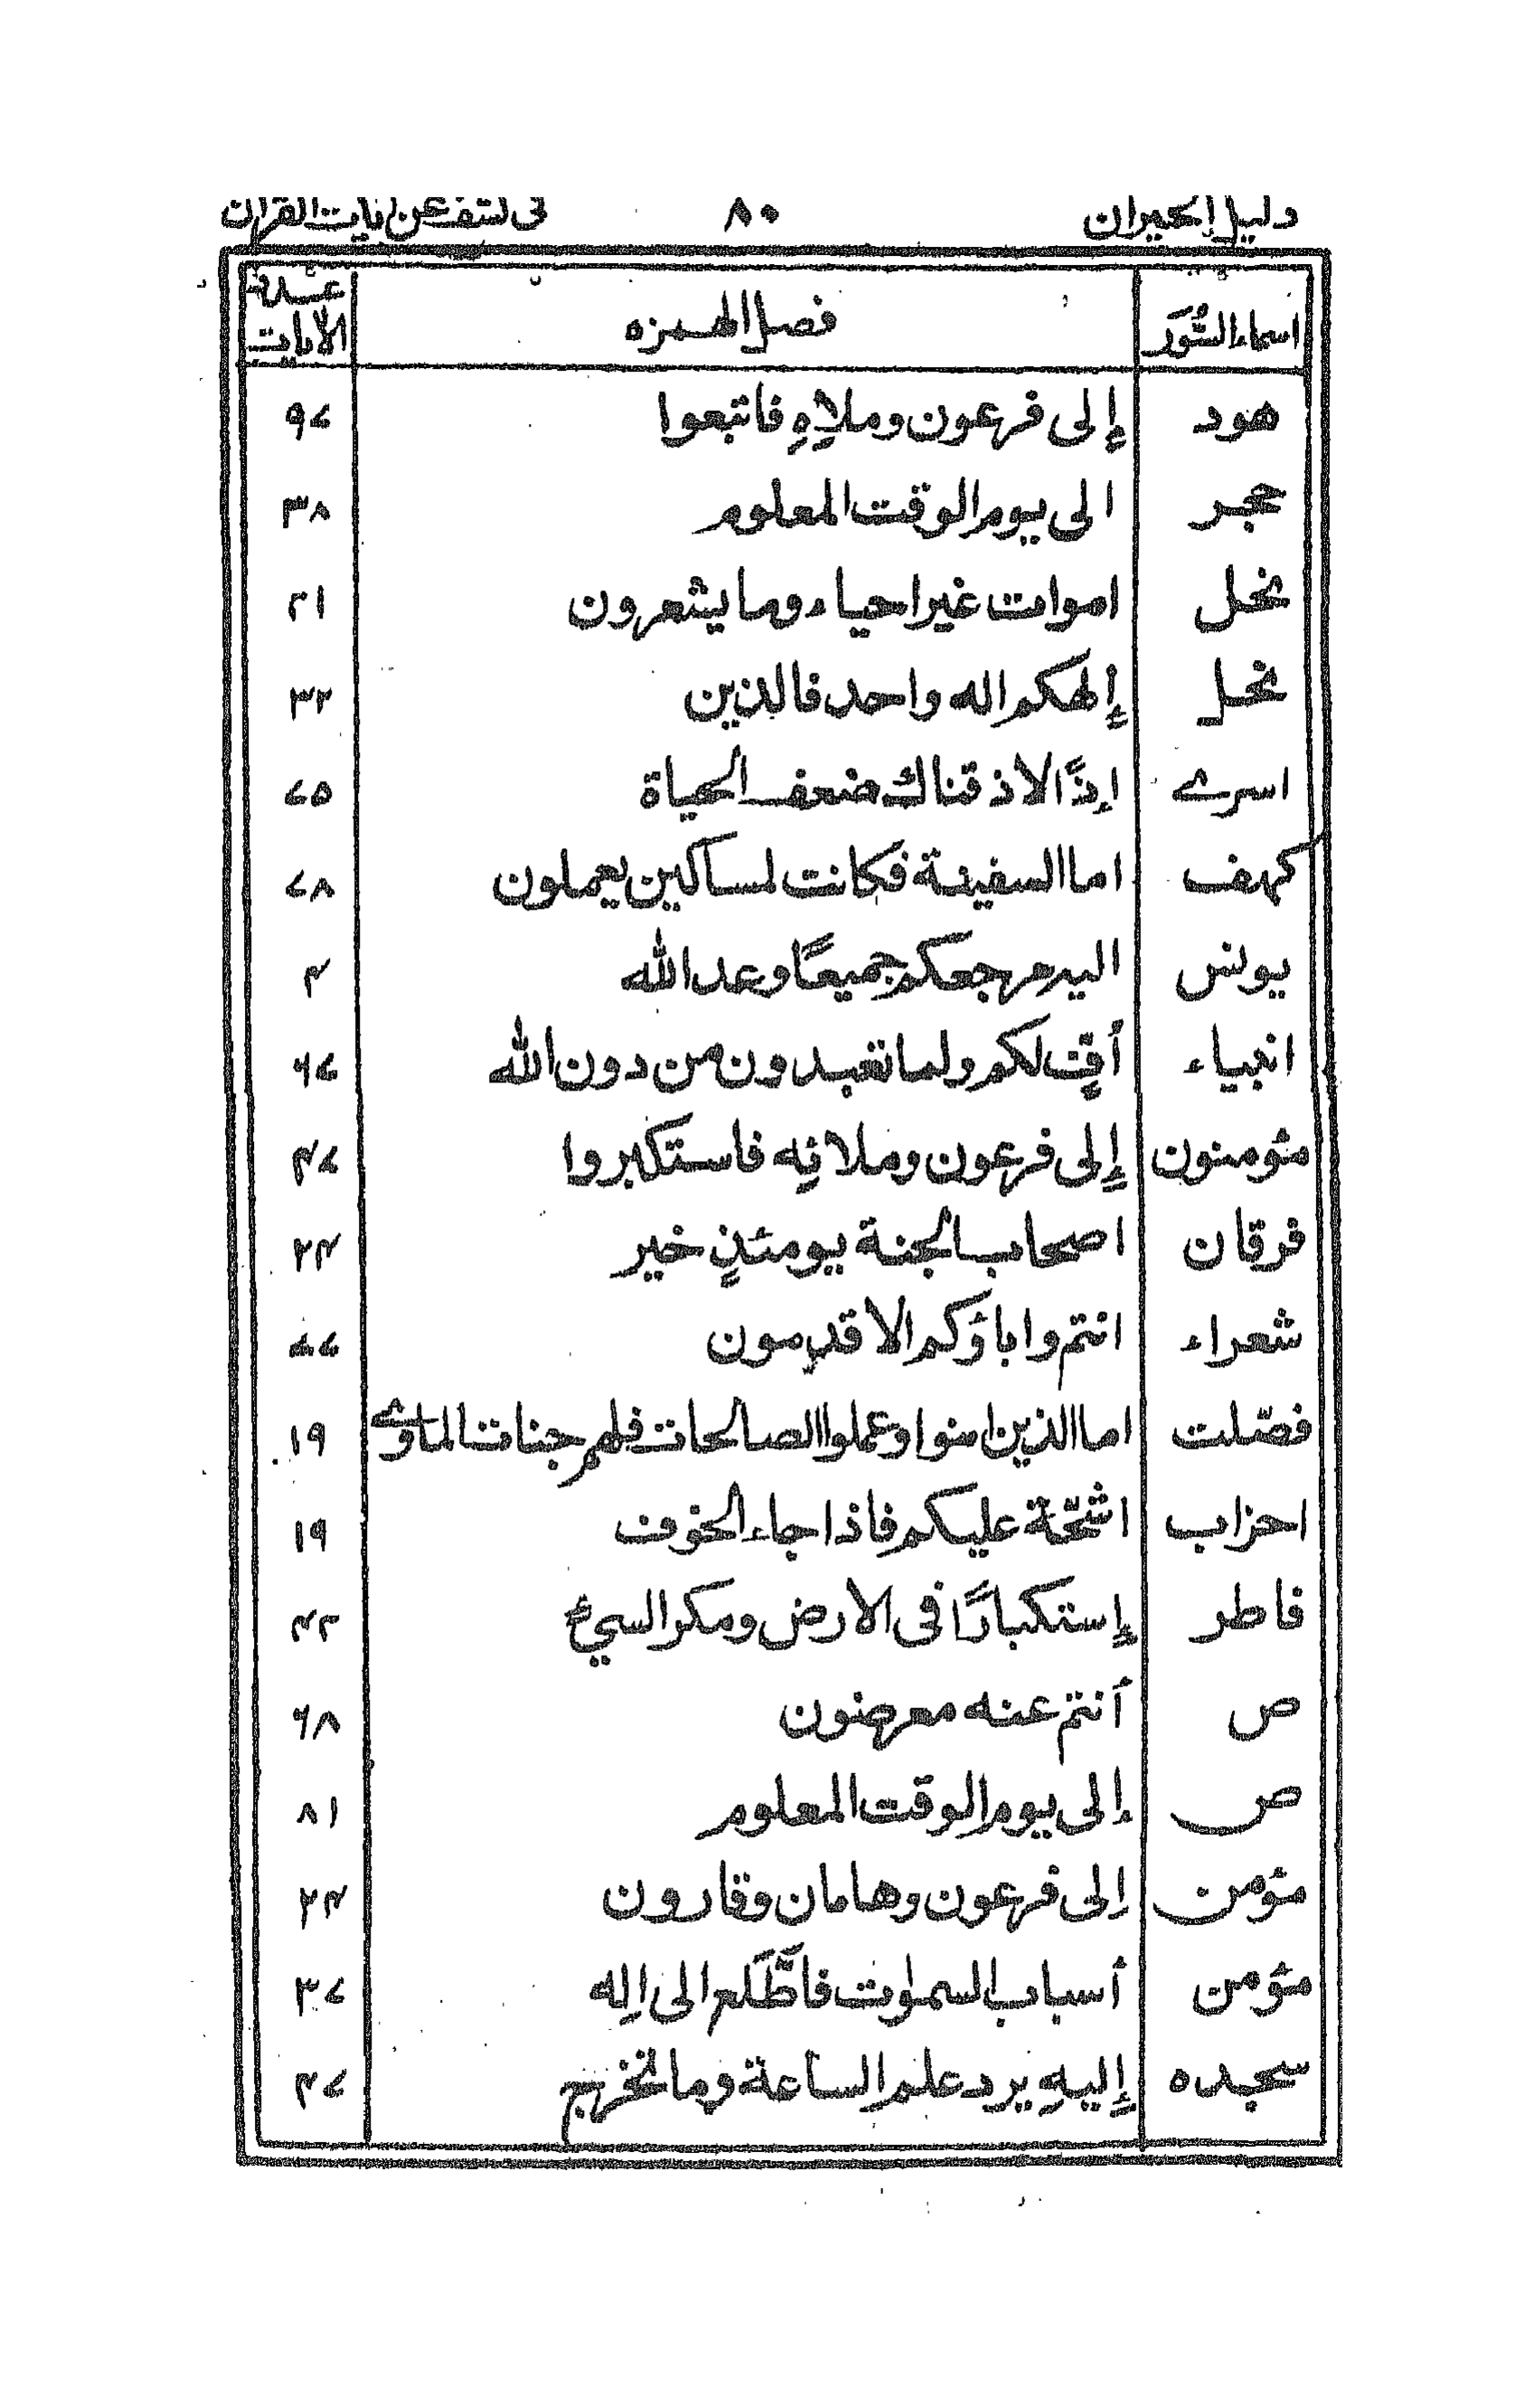 دليل الحيران ٨٠ في الكشف عن ايات القران
اسماء السُّوَر فصل الهمزه عدة الايات
هود إلى فرعون وملاِهِ فاتبعوا ٩٧
حجر الى يوم الوقت المعلوم ٣٨
نحل اموات غير احياء وما يشعرون ٢١
نحل إلهكم اله واحد فالذين ٢٢
اسرے اِذًا لاذقناك ضعف الحياة ٧٥
كهف اما السفينة فكانت لمساكين يعملون ٧٨
يونس اليه مرجعكم جميعًا وعد الله ٤
انبياء أفٍّ لكم ولما تعبدون من دون الله ٦٧
مئومنون إلى فرعون وملائِه فاستكبروا ٤٧
فرقان اصحاب الجنة يومئذٍ خير ٢٤
شعراء انتم واباؤكم الاقدمون ٧٦
فصّلت اما الذين امنوا وعملوا الصالحات فلهم جنات الماوے ١٩
احزاب اشحّة عليكم فاذا جاء الخوف ١٩
فاطر إستكبارًا فى الارض ومكر السيئ ٤٢
ص أنتم عنه معرضون ٦٨
ص إلى يوم الوقت المعلوم ٨١
مئومن اِلى فرعون وهامان وقارون ٢٤
مئومن أسباب السمٰوات فاَطَّلَع الى اِله ٣٧
سجده إليهِ يرد علم الساعة وما تخرج ٤٧